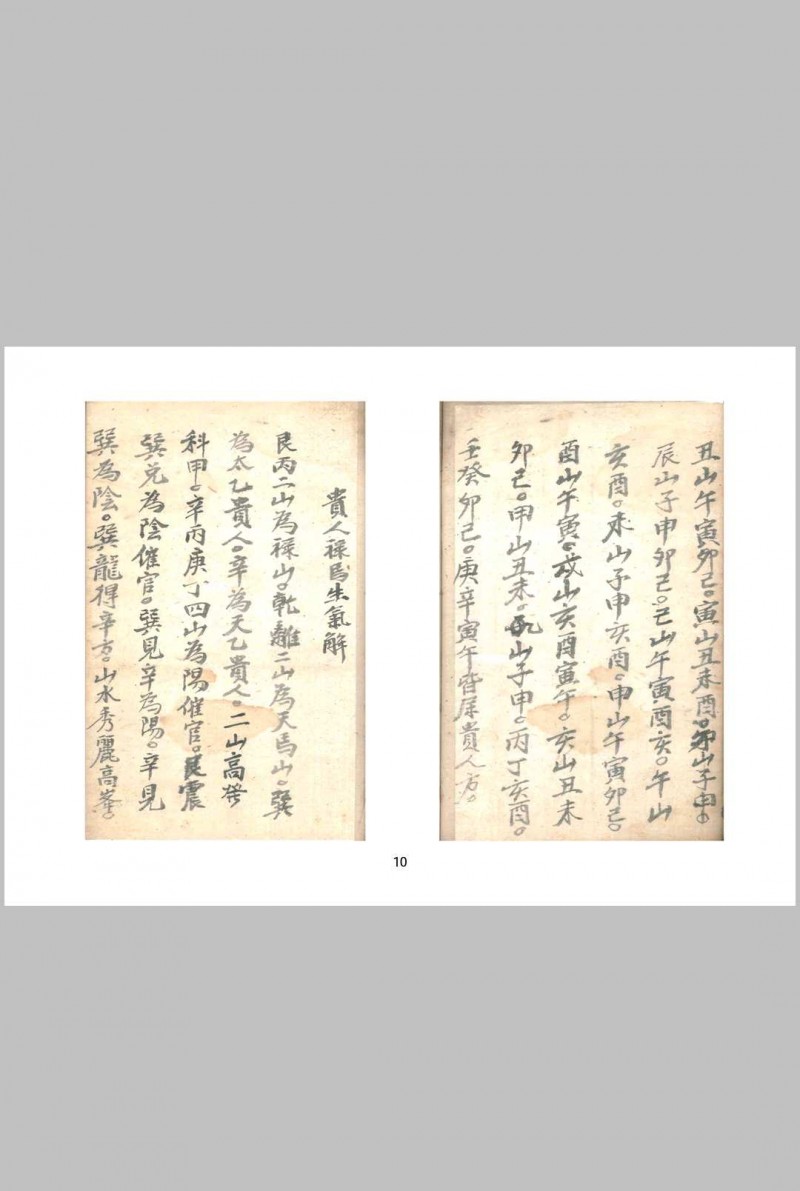 丑山午寅卯己。寅山丑未酉。卯山子申。
辰山子申卯己。己山午寅酉亥。午山
亥酉。未山子甲亥酉。申山午寅卯己。
酉山午寅。戍山亥酉寅午。亥山丑未
卯己。甲山丑未。乾山子甲。丙丁亥酉。
壬癸卯己。庚辛寅午皆屬貴人方。
貴人祿馬生氣解
艮丙二山為祿山。乾離二山為天馬山。巽
為太乙貴人。辛為天乙貴人。二山高聳
科甲。辛丙庚丁四山為陽催官。艮震
巽兌為陰催官。巽見辛為陽。辛見
巽為陰。巽龍得辛方。山水秀麗高峯。
10